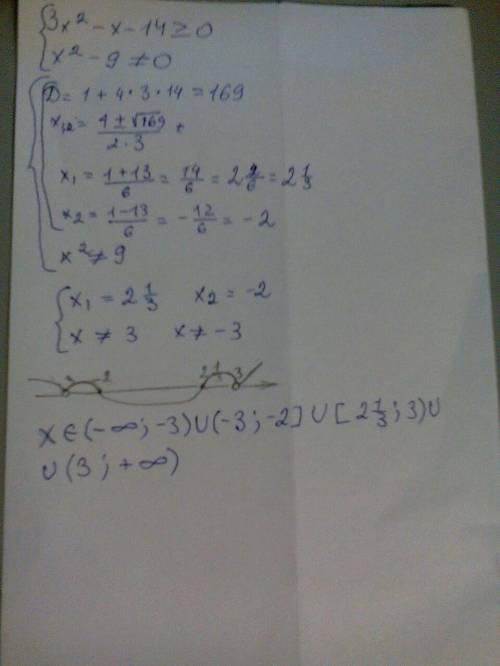 { 3x² - x - 14 ≥ 0
x² - 9 ≠ 0
{ D = 1 + 4 · 3 · 14 = 169
x₁,₂ = (1 ± √169) / (2 · 3)
x₁ = (1+13)/6 = 14/6 = 2 2/6 = 2 1/3
x₂ = (1-13)/6 = -12/6 = -2
x² ≠ 9
{ x₁ = 2 1/3 x₂ = -2
x ≠ 3 x ≠ -3
-3 -2 2 1/3 3
x ∈ (-∞; -3) ∪ (-3; -2] ∪ [2 1/3; 3) ∪
∪ (3; +∞)